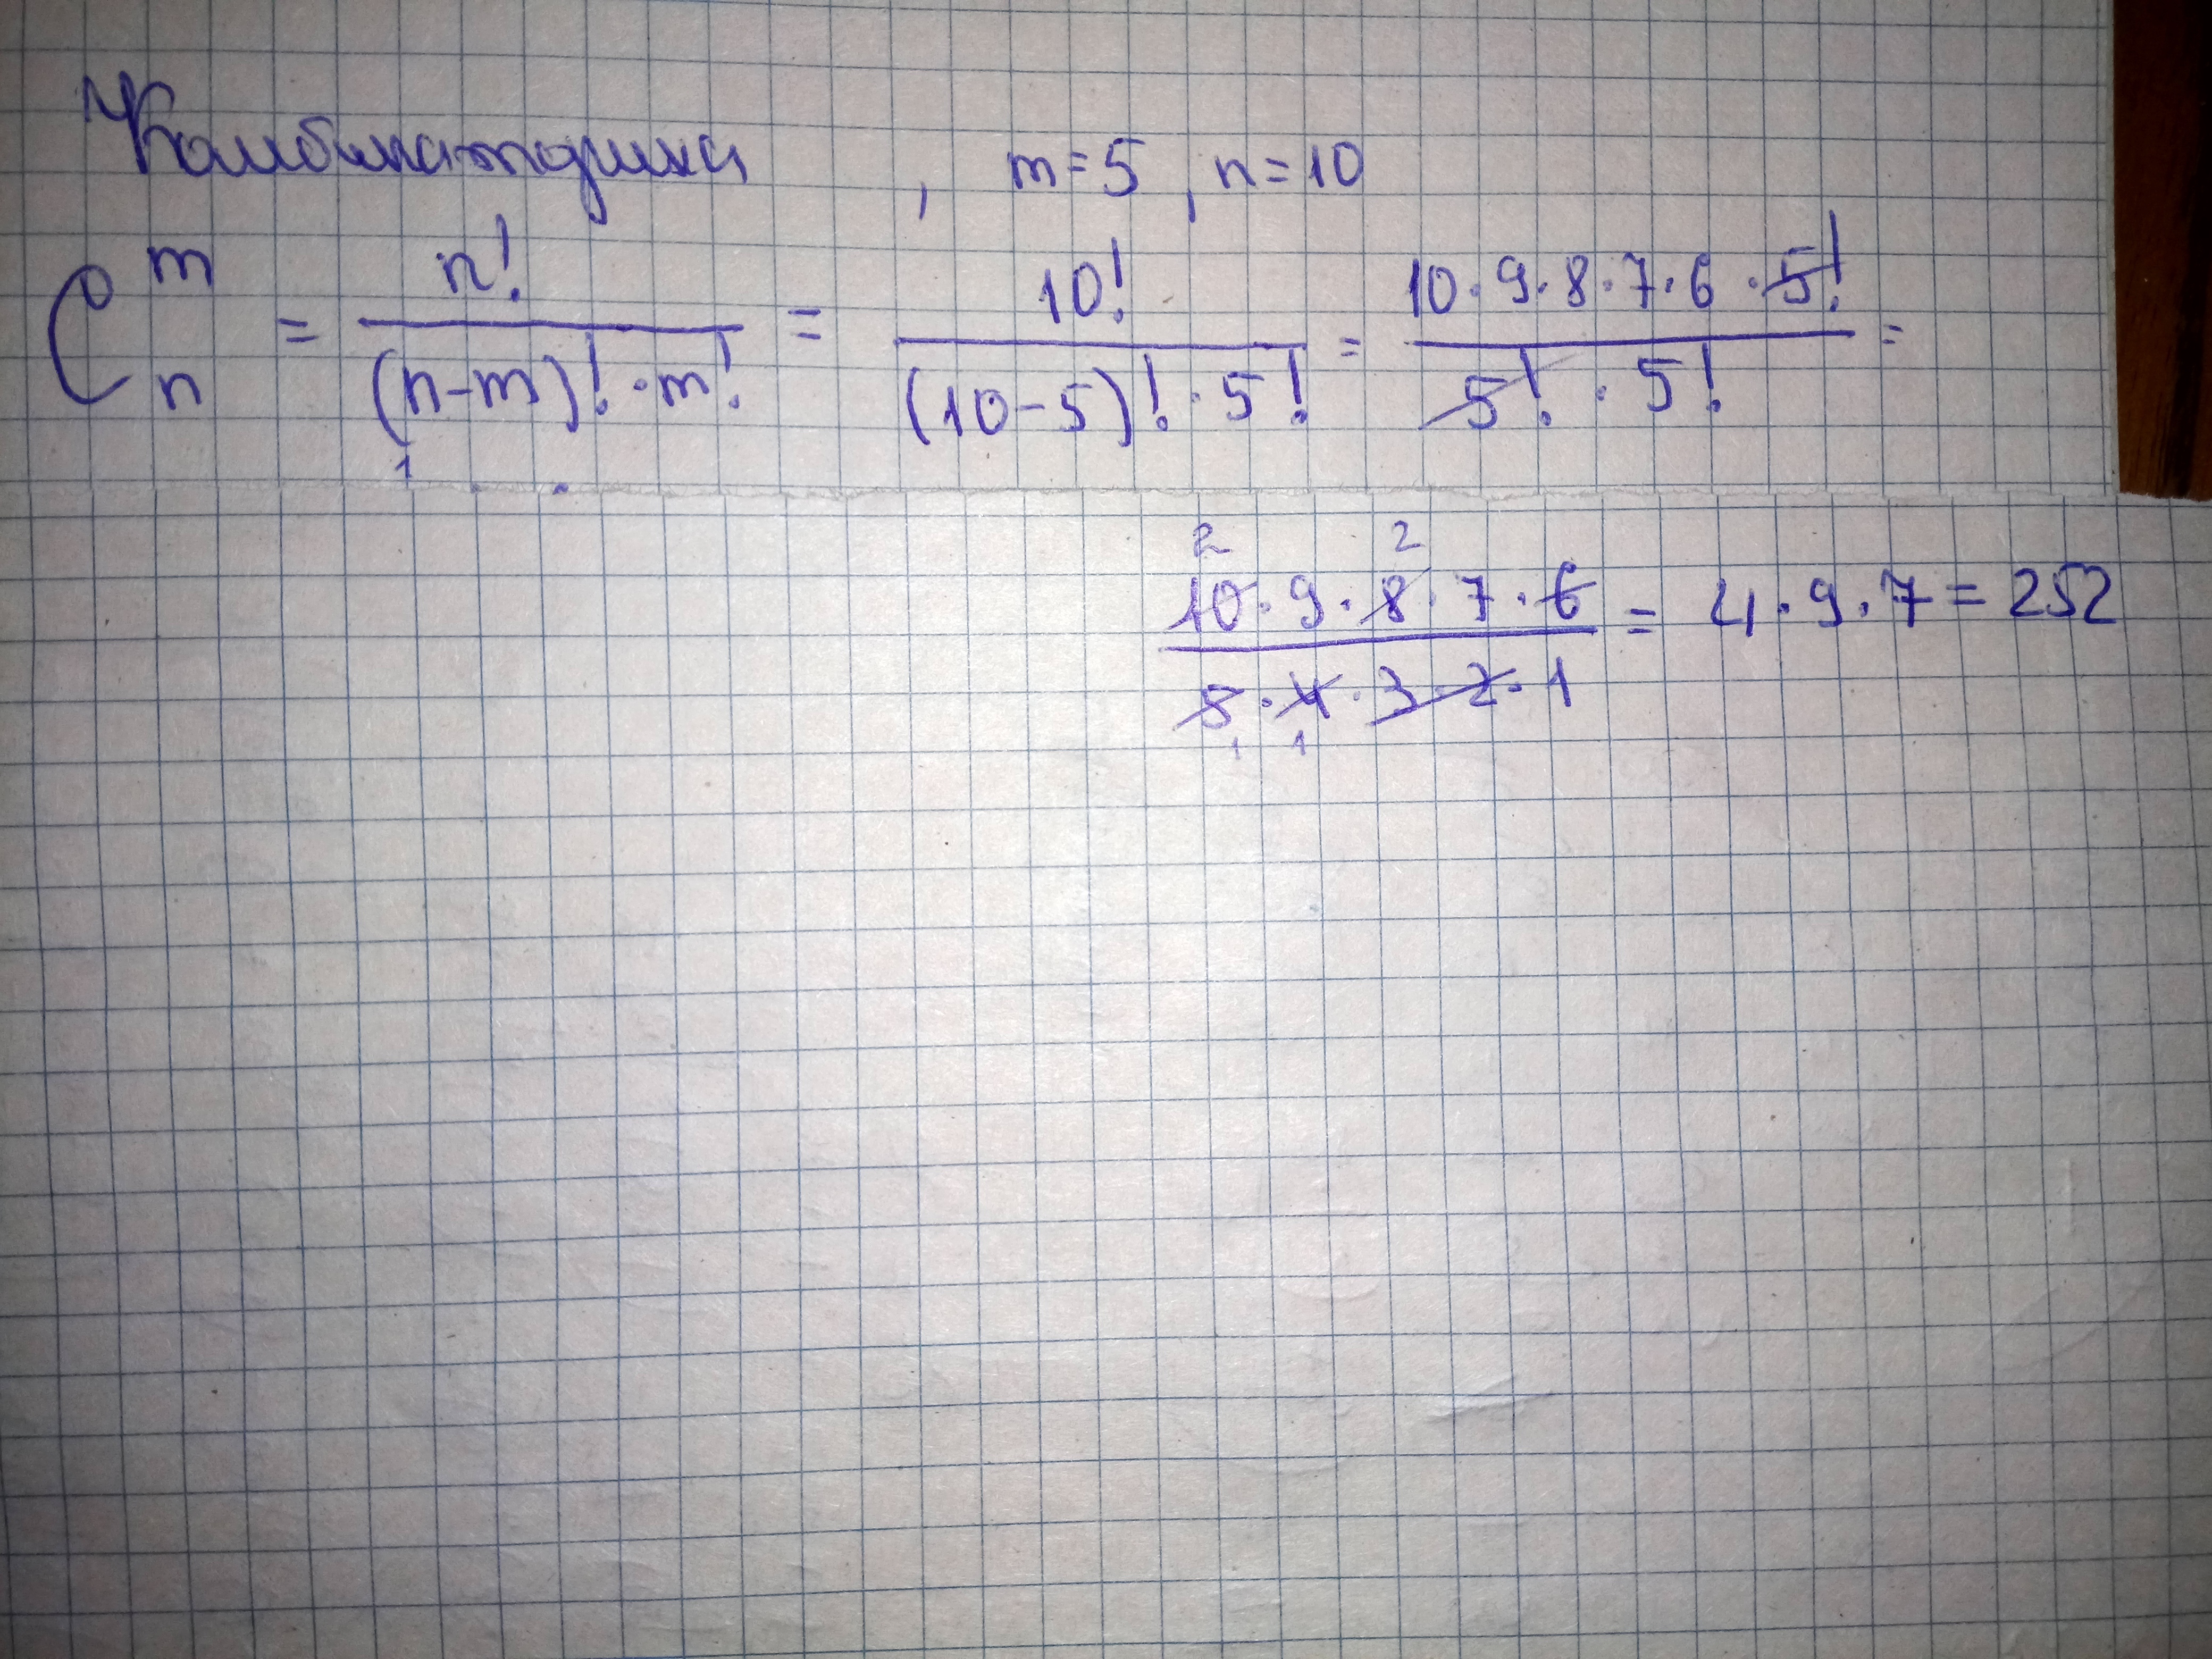 Комбинаторика, m=5, n=10
C_n^m = n! / ((n-m)! · m!) = 10! / ((10-5)! · 5!) = 10·9·8·7·6·5! / (5! · 5!) =
1
2 2
10·9·8·7·6 / (5·4·3·2·1) = 4·9·7 = 252
1 1